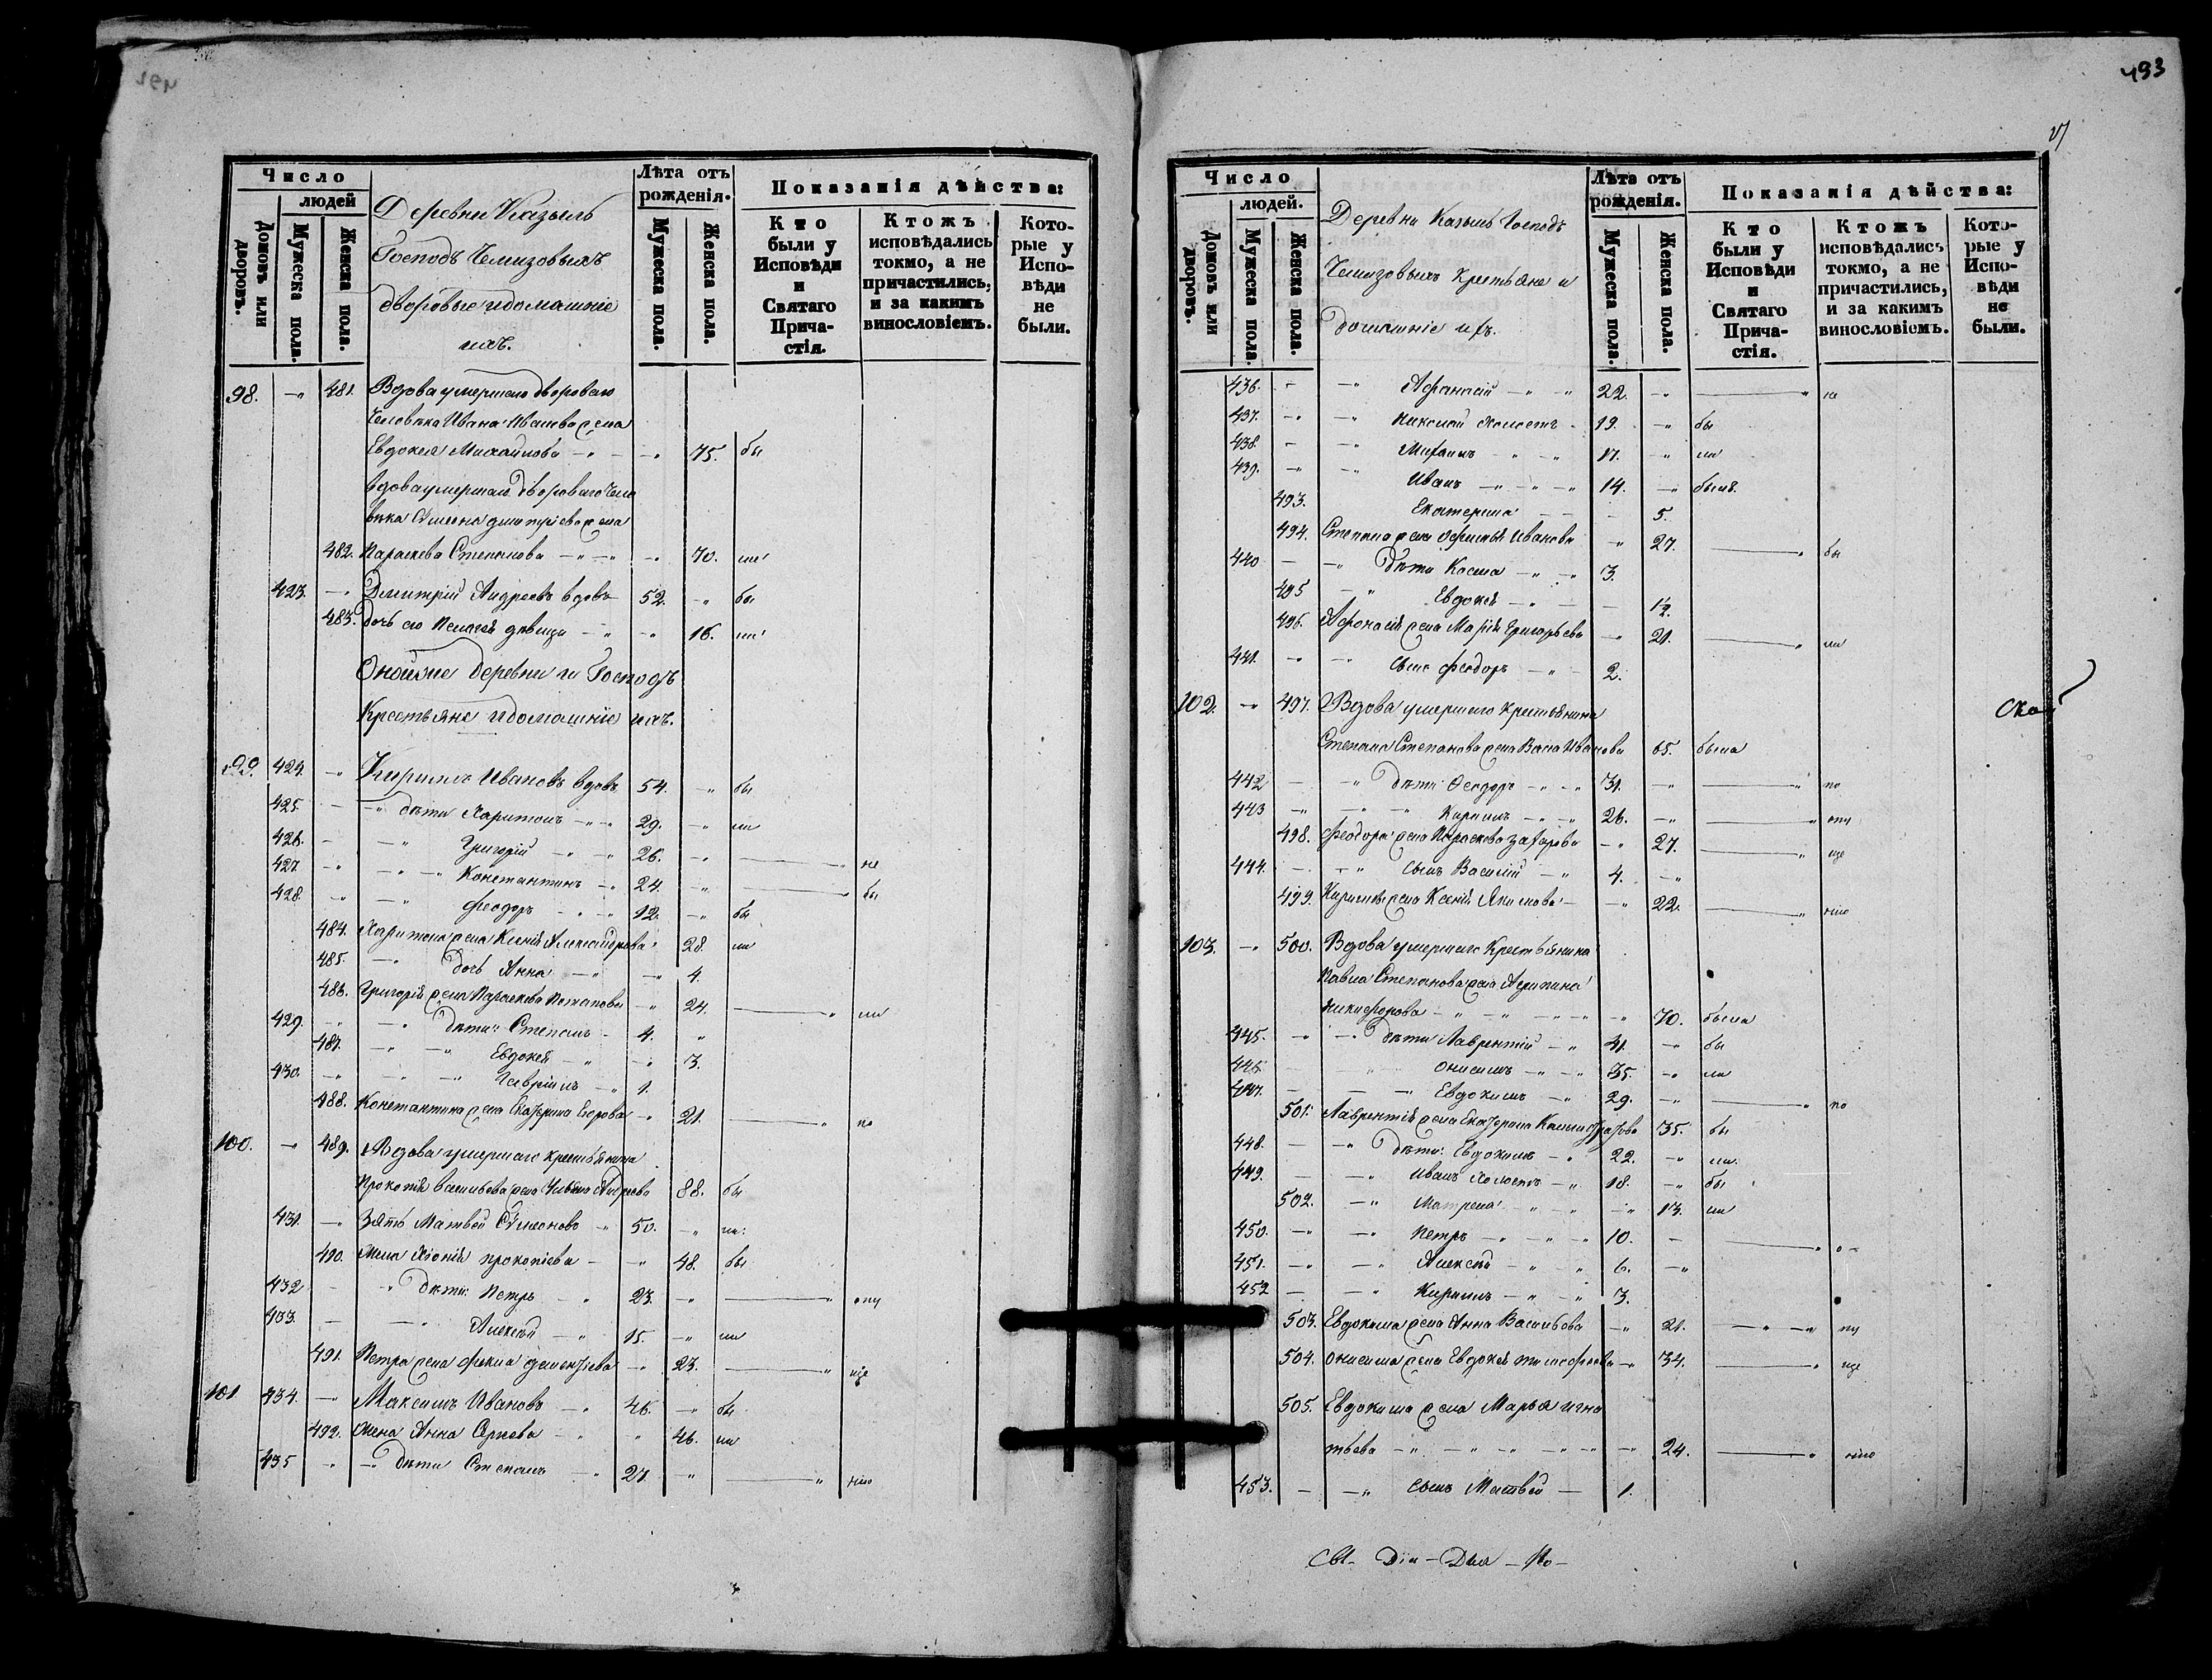 493
Число
людей
Домовъ или дворовъ.
Мужеска пола.
Женска пола.
Деревни Казыль
Господъ Чемизовыхъ
дворовые и домашніе
ихъ.
Лѣта отъ рожденія.
Мужеска пола.
Женска пола.
Показанія дѣйства:
Кто были у Исповѣди и Святаго Причастія.
Ктожъ исповѣдались токмо, а не причастились, и за какимъ винословіемъ.
Которые у Исповѣди не были.
98. 481. Вдова умершаго двороваго
Человѣка Ивана Ивлева жена
Евдокея Михайлова 75. бы
вдова умершаго двороваго чело
вѣка Симеона Дмитріева жена
482. Параскева Степанова 70. ли
423. Дмитрій Андреевъ вдовъ 52. бы
483. дочь его Пелагея дѣвица 16. ли
Оной же деревни и Господъ
Крестьяне и домашніе ихъ.
99. 424. Кириллъ Ивановъ вдовъ 54. бы
425. дѣти Харитонъ 29. ли
426. Григорій 26. не
427. Константинъ 24. бы
428. Феодоръ 12. бы
484. Харитона жена Ксенія Александрова 28. ли
485. дочь Анна 4
486. Григорія жена Параскева Потапова 24. ли
429. дѣти: Степанъ 4.
487. Евдокея 3.
430. Гавріилъ 1.
488. Константина жена Екатерина Егорова 21. по
100. 489. Вдова умершаго крестьянина
Прокопія Васильева жена Андреева 88. бы
431. Зять Матвей Симеоновъ 50. ли:
490. Жена Прокопіева 48. бы
432 дѣти: Петръ 23. опу
433. Алексѣй 15. ли
491. Петра жена Фекла 23. ще
101 434. Максимъ Ивановъ 46. бы
492. Жена Анна 46. ли
435 дѣти Степанъ 27. нію
Число
людей.
Домовъ или дворовъ.
Мужеска пола.
Женска пола.
Деревни Казыль Господъ
Чемизовыхъ крестьяне и
домашніе ихъ.
Лѣта отъ рожденія.
Мужеска пола.
Женска пола.
Показанія дѣйства:
Кто были у Исповѣди и Святаго Причастія.
Ктожъ исповѣдались токмо, а не причастились, и за какимъ винословіемъ.
Которые у Исповѣди не были.
436. Афанасій 22.
437. Николай холостъ 19. бы
438. Михаилъ 17. ли
439. Иванъ 14. былъ.
493. Екатерина 5.
494. Степана жена Иванова 27. бы
440 дѣти Косма 3.
495 Евдокея 1/2.
496. Афонасія жена Марія Григорьева 21. ли
441. сынъ Феодоръ 2.
102. 497. Вдова умершаго Крестьянина
Степана Степанова жена Васса Иванова 65. была
442 дѣти Феодоръ 31. по
443 Кириллъ 26. опу
498. Феодора жена Параскева Захарова 27. ще
444. сынъ Василій 4.
499. Кирилла жена Ксенія Якимова 22. нію
103. 500. Вдова умершаго Крестьянина
Павла Степанова жена Агрипина
Никифорова 70. была
445. дѣти Лаврентій 41. бы
446 Онисимъ 35. ли
447. Евдокимъ 29. по
501. Лаврентія жена Екатерина 35. бы
448. дѣти: Евдокимъ 22. ли.
449. Иванъ холостъ 18. бы
502. Матрена 13. ли
450. Петръ 10.
451. Алексѣй 6.
452 Кириллъ 3.
503. Евдокима жена Анна Васильева 21. пу
504. Онисима жена Евдокея 34. ще
505. Евдокима жена Марья Игна
тьева 24. нію
453. сынъ Матвей 1.